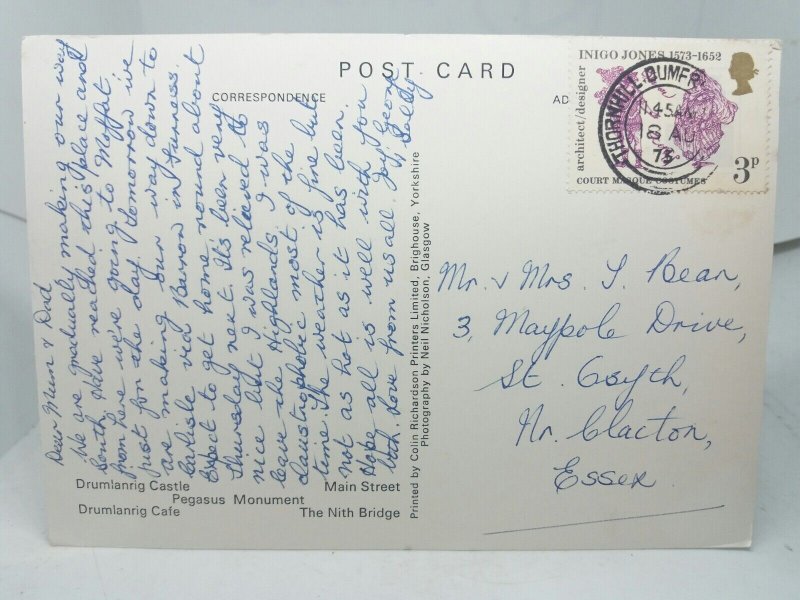 POST CARD
CORRESPONDENCE
AD
INIGO JONES 1573-1652
architect/designer
COURT MASQUE COSTUMES
3p
THORNHILL DUMFR
1 45AM
18 AU
73
Dear Mum & Dad
We are gradually making our way
South. We've reached this place and
from here we're going to Moffat
just for the day. Tomorrow we
are making our way down to
Carlisle via Barrow in Furness.
Expect to get home round about
Thursday next. Its been very
nice but I was relieved to
leave the Highlands. I was
claustrophobic most of the
time. The weather is fine but
not as hot as it has been.
Hope all is well with you
both. Love from us all. Joy, Geoff
& Sally
Mr. & Mrs. S. Bean,
3, Maypole Drive,
St. Osyth,
Nr. Clacton,
Essex.
Printed by Colin Richardson Printers Limited, Brighouse, Yorkshire
Photography by Neil Nicholson, Glasgow
Drumlanrig Castle Main Street
Pegasus Monument
Drumlanrig Cafe The Nith Bridge